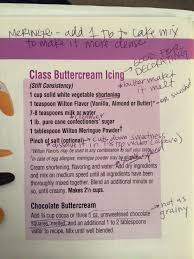 Meringue - add 1 Tb to cake mix
to make it more dense
GOOD FOR
DECORATING
Class Buttercream Icing
(Stiff Consistency)
butter makes
it melt
1 cup solid white vegetable shortening
1 teaspoon Wilton Flavor (Vanilla, Almond or Butter)*
7-8 teaspoons milk or water
1 lb. pure cane confectioners' sugar
1 tablespoon Wilton Meringue Powder*
Pinch of salt (optional)
cuts down sweetness
dissolve it in 1 Tsp
*Wilton Flavors may be used in any combination to suit your taste.
*In case of egg allergy, meringue powder may be
Cream shortening, flavoring and water. Add dry ingredients
and mix on medium speed until all ingredients have been
thoroughly mixed together. Blend an additional minute or
so, until creamy. Makes 2½ cups.
Chocolate Buttercream
not as
grainy
Add ¾ cup cocoa or three 1 oz. unsweetened chocolate
squares, melted, and an additional 1 to 2 tablespoons
water to recipe. Mix until well blended.